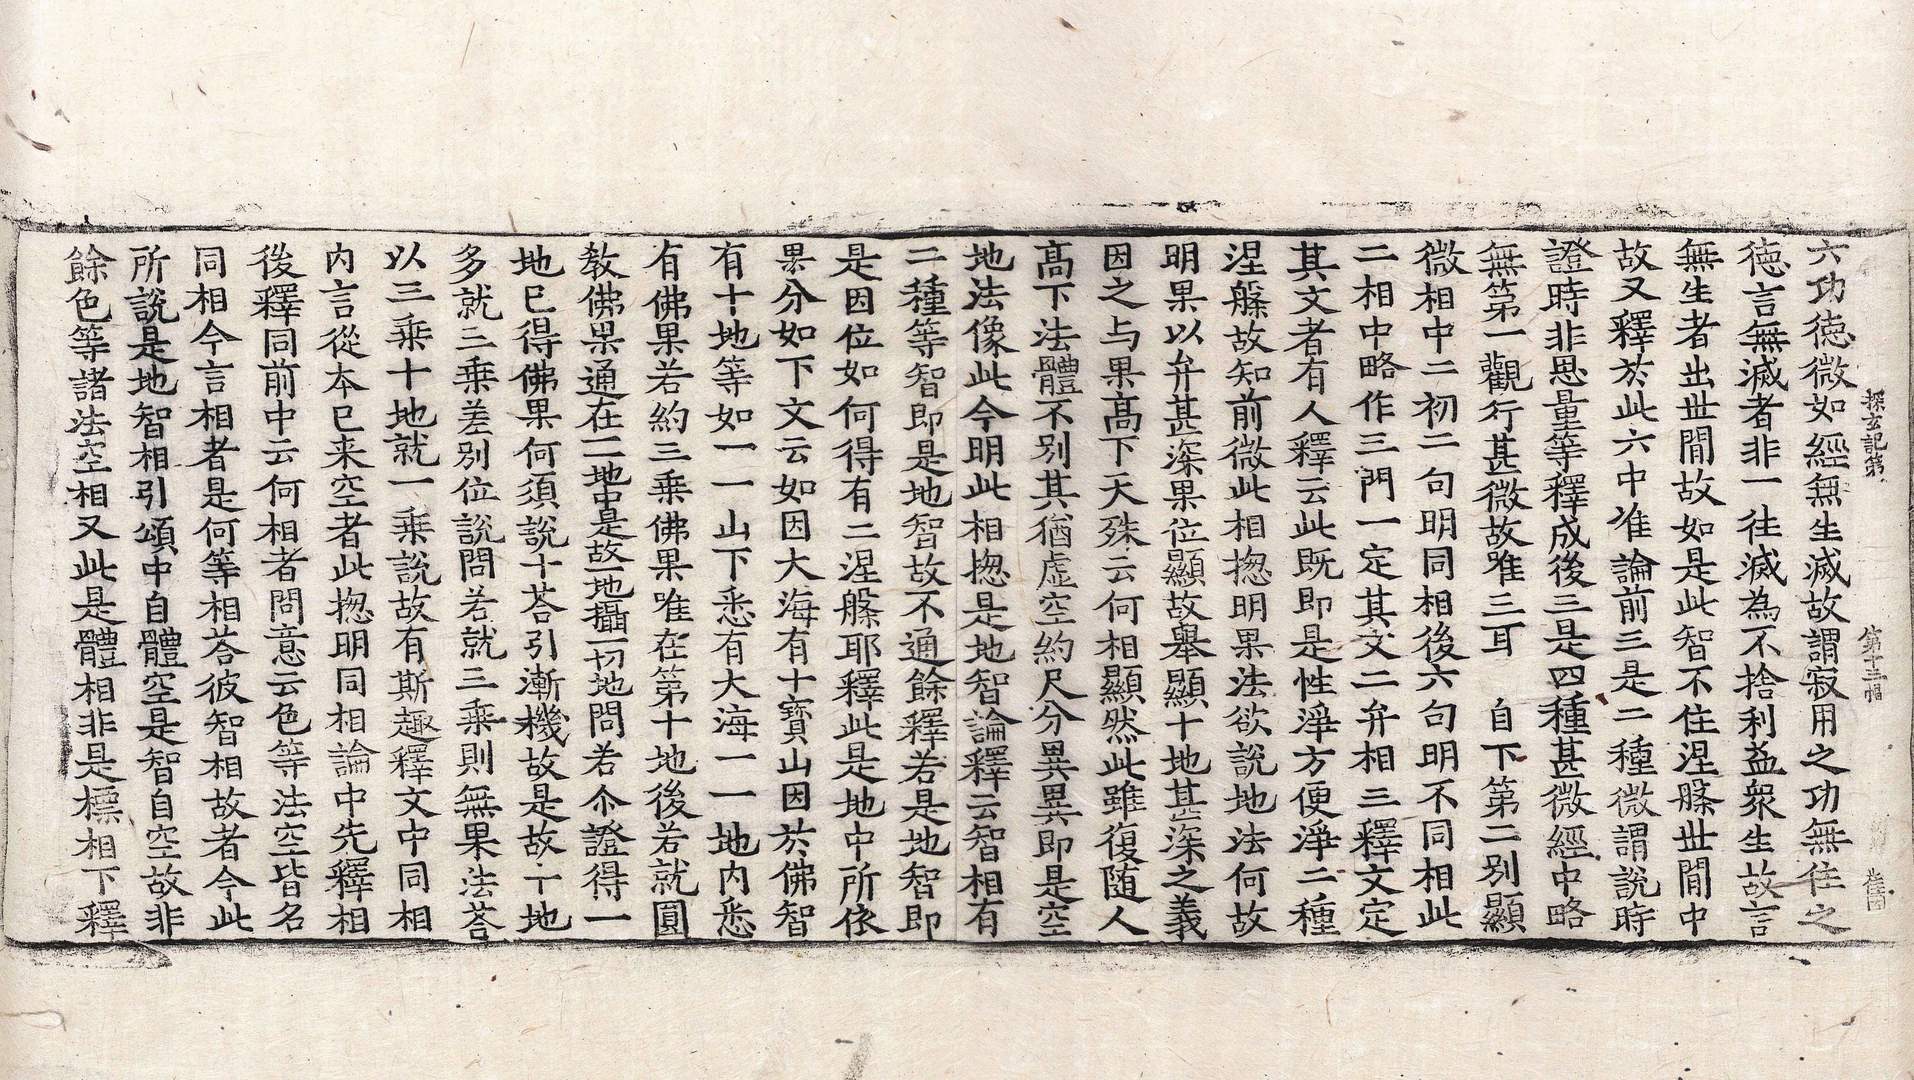 探玄記第　第十三幅
六功德微如經無生滅故謂寂用之功無住之
德言無滅者非一往滅為不捨利益衆生故言
無生者出世間故如是此智不住涅槃世間中
故又釋於此六中准論前三是二種微謂說時
證時非思量等釋成後三是四種甚微經中略
無第一觀行甚微故唯三耳　自下第二別顯
微相中二初二句明同相後六句明不同相此
二相中略作三門一定其文二弁相三釋文定
其文者有人釋云此既即是性淨方便淨二種
涅槃故知前微此相揔明果法欲說地法何故
明果以弁甚深果位顯故舉顯十地甚深之義
因之与果高下天殊云何相顯然此雖復随人
高下法體不別其猶虛空約尺分異異即是空
地法像此今明此相揔是地智論釋云智相有
二種等智即是地智故不通餘釋若是地智即
是因位如何得有二涅槃耶釋此是地中所依
果分如下文云如因大海有十寶山因於佛智
有十地等如一一山下悉有大海一一地內悉
有佛果若約三乘佛果唯在第十地後若就圓
教佛果通在二地中是故一地攝一切地問若尒證得一
地已得佛果何須說十荅引漸機故是故一一地
多就三乘差別位說問若就三乘則無果法荅
以三乘十地就一乘說故有斯趣釋文中同相
內言從本已来空者此揔明同相論中先釋相
後釋同前中云何相者問意云色等法空皆名
同相今言相者是何等相荅彼智相故者今此
所說是地智相引頌中自體空是智自空故非
餘色等諸法空相又此是體相非是標相下釋